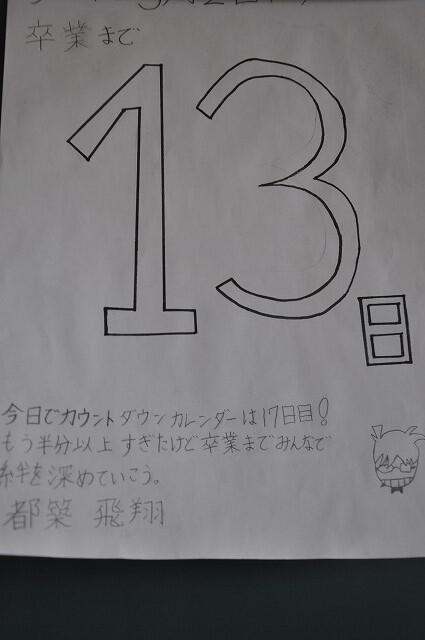 卒業まで
13日
今日でカウントダウンカレンダーは17日目!
もう半分以上すぎたけど卒業までみんなで
絆を深めていこう。
都築 飛翔